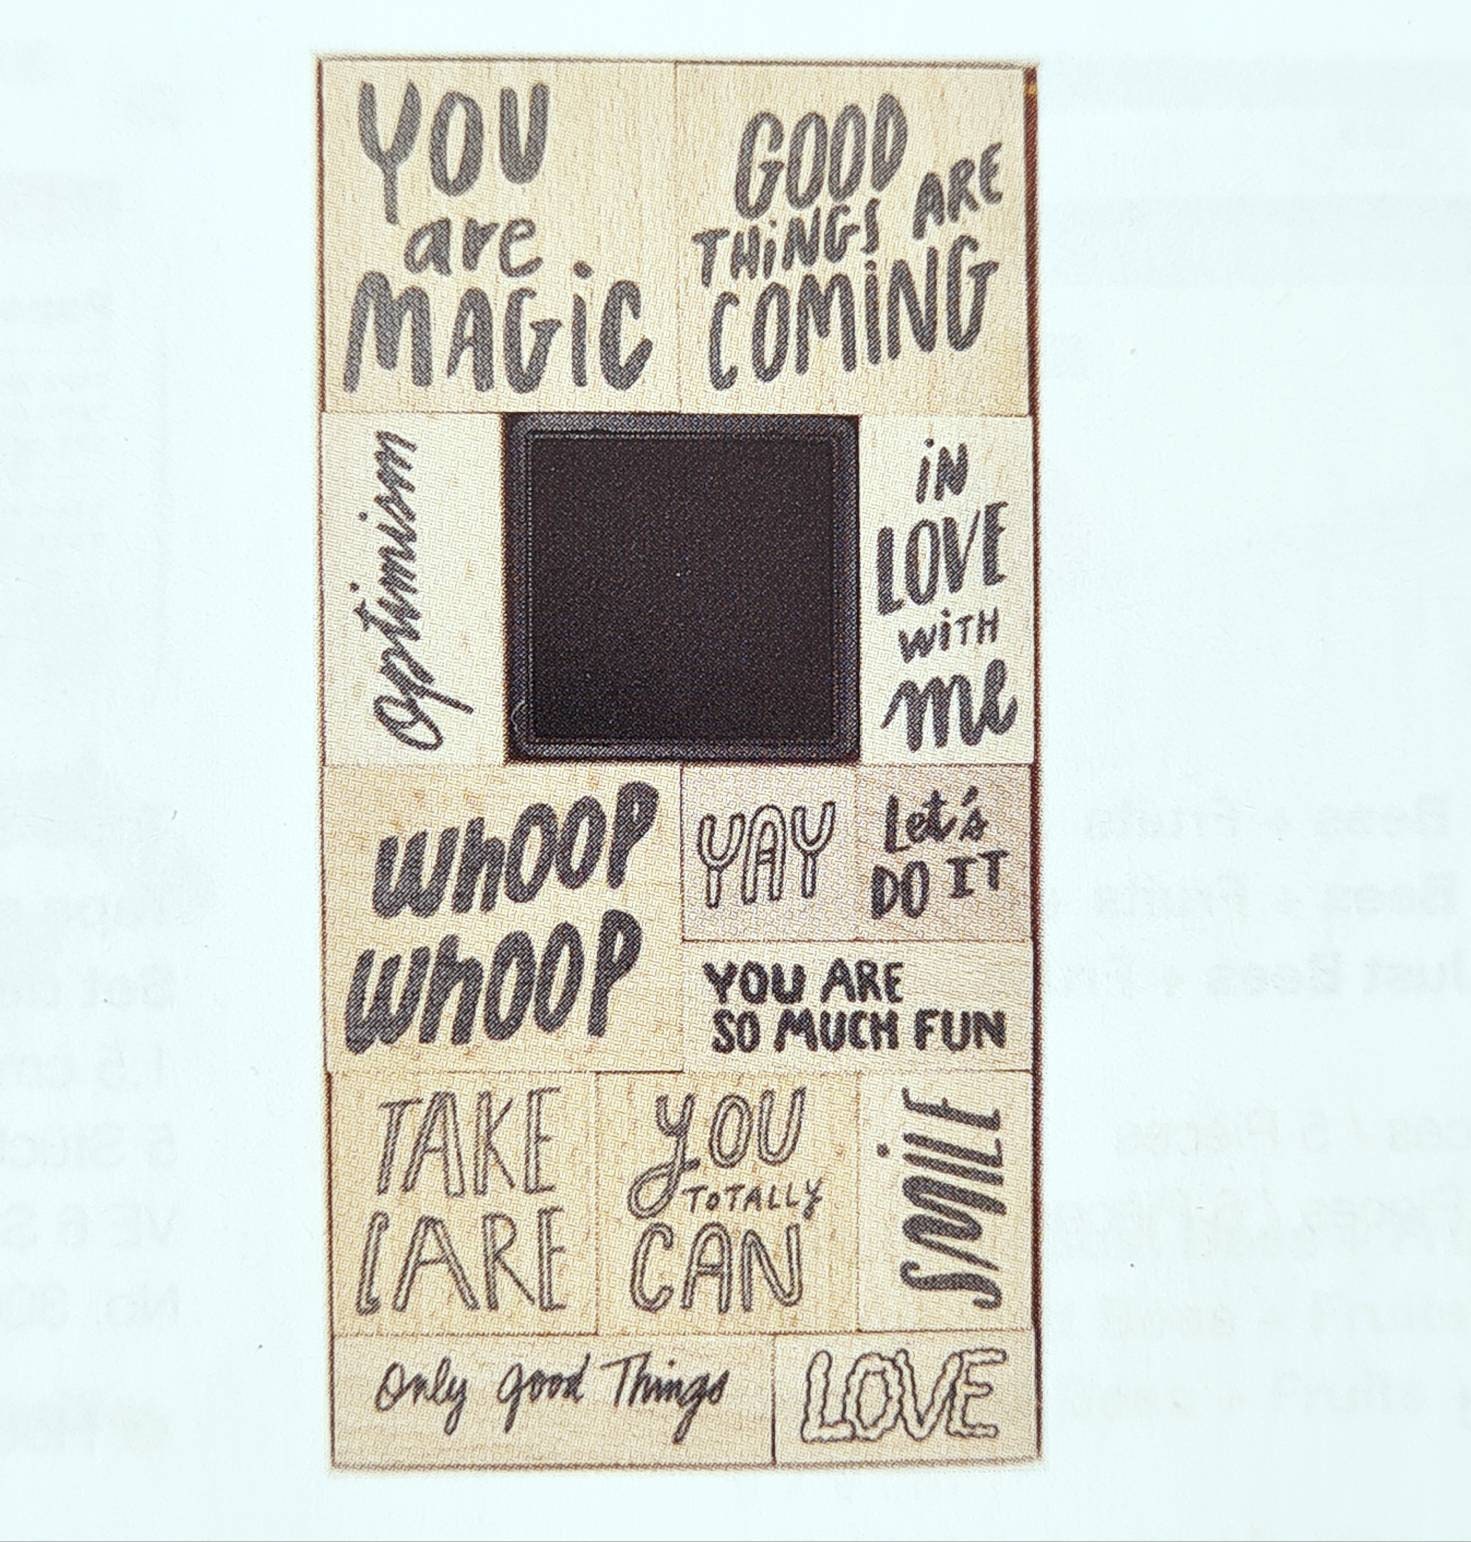 YOU
are
MAGiC
GOOD
THiNGS ARE
COMiNG
Optimism
iN
LOVE
WiTH
me
WhOOP
WhOOP
YAY
Let's
DO IT
YOU ARE
SO MUCH FUN
TAKE
CARE
YOU
TOTALLY
CAN
SMILE
Only good Things
LOVE